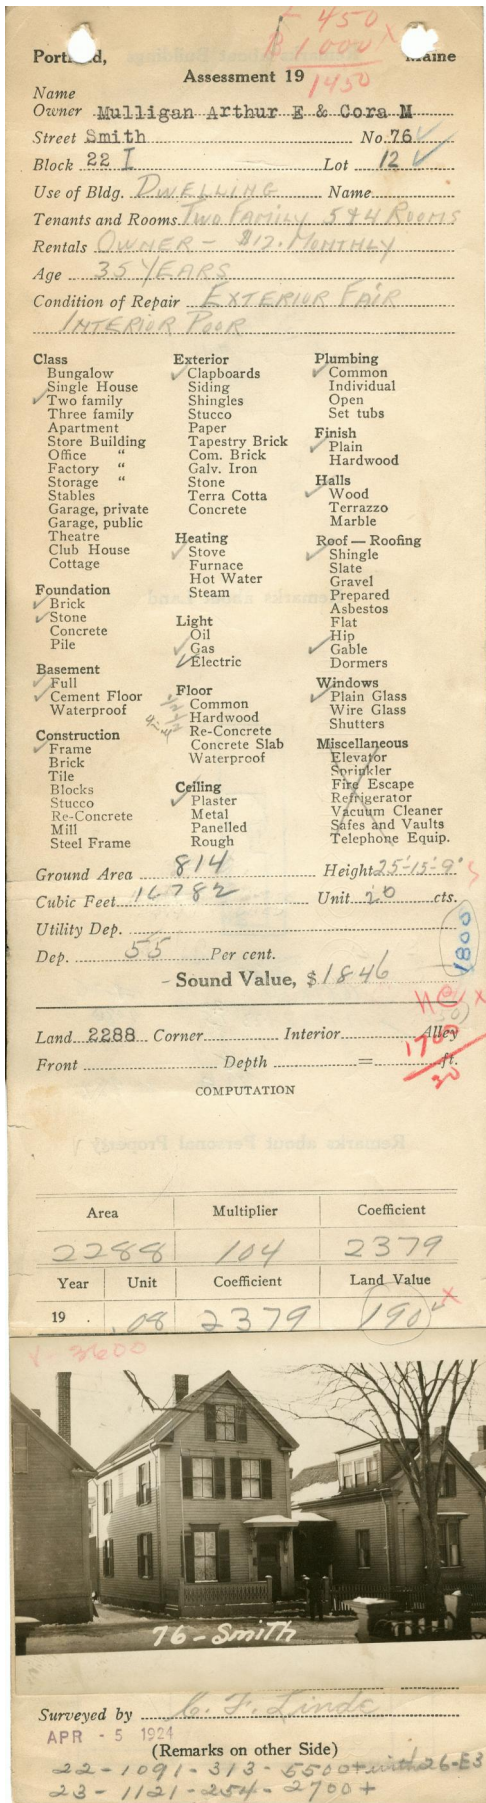 L 450
B 1000 X
1450
Portland, Maine
Assessment 19
Name
Owner Mulligan Arthur E & Cora M
Street Smith No. 76 ✓
Block 22 I Lot 12 ✓
Use of Bldg. DWELLING Name
Tenants and Rooms TWO FAMILY 5 & 4 ROOMS
Rentals OWNER - $12. MONTHLY
Age 35 YEARS
Condition of Repair EXTERIOR FAIR
INTERIOR POOR
Class
Bungalow
Single House
✓ Two family
Three family
Apartment
Store Building
Office "
Factory "
Storage "
Stables
Garage, private
Garage, public
Theatre
Club House
Cottage
Foundation
✓ Brick
✓ Stone
Concrete
Pile
Basement
✓ Full
✓ Cement Floor
Waterproof
Construction
✓ Frame
Brick
Tile
Blocks
Stucco
Re-Concrete
Mill
Steel Frame
Exterior
✓ Clapboards
Siding
Shingles
Stucco
Paper
Tapestry Brick
Com. Brick
Galv. Iron
Stone
Terra Cotta
Concrete
Heating
✓ Stove
Furnace
Hot Water
Steam
Light
Oil
✓ Gas
✓ Electric
Floor
½ Common
½ Hardwood
Re-Concrete
Concrete Slab
Waterproof
Ceiling
✓ Plaster
Metal
Panelled
Rough
Plumbing
✓ Common
Individual
Open
Set tubs
Finish
✓ Plain
Hardwood
Halls
✓ Wood
Terrazzo
Marble
Roof — Roofing
✓ Shingle
Slate
Gravel
Prepared
Asbestos
Flat
Hip
✓ Gable
Dormers
Windows
✓ Plain Glass
Wire Glass
Shutters
Miscellaneous
Elevator
Sprinkler
Fire Escape
Refrigerator
Vacuum Cleaner
Safes and Vaults
Telephone Equip.
Ground Area 814 Height 25'-15'-9'
Cubic Feet 16782 Unit 20 cts.
Utility Dep.
Dep. 55 Per cent.
1800
Sound Value, $ 1846
Land 2288 Corner Interior Alley
1700
Front Depth = ft.
20
COMPUTATION
Area Multiplier Coefficient
2288 104 2379
Year Unit Coefficient Land Value
19 .08 2379 190 X
V- 3600
76 - Smith
Surveyed by C. F. Linde
APR - 5 1924
(Remarks on other Side)
22 - 1091 - 313 - 5500+ with 26-E3
23 - 1121 - 254 - 2700+